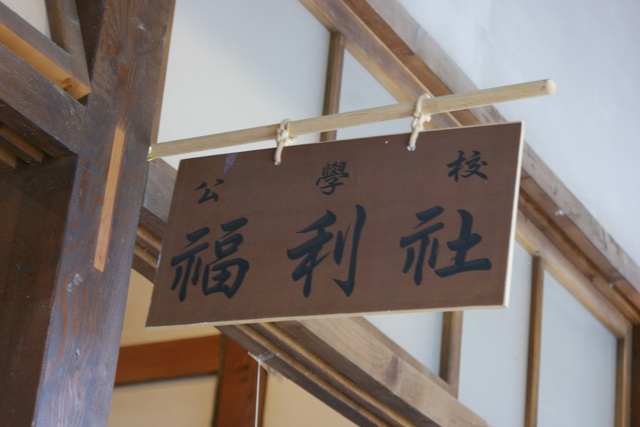 公學校
福利社